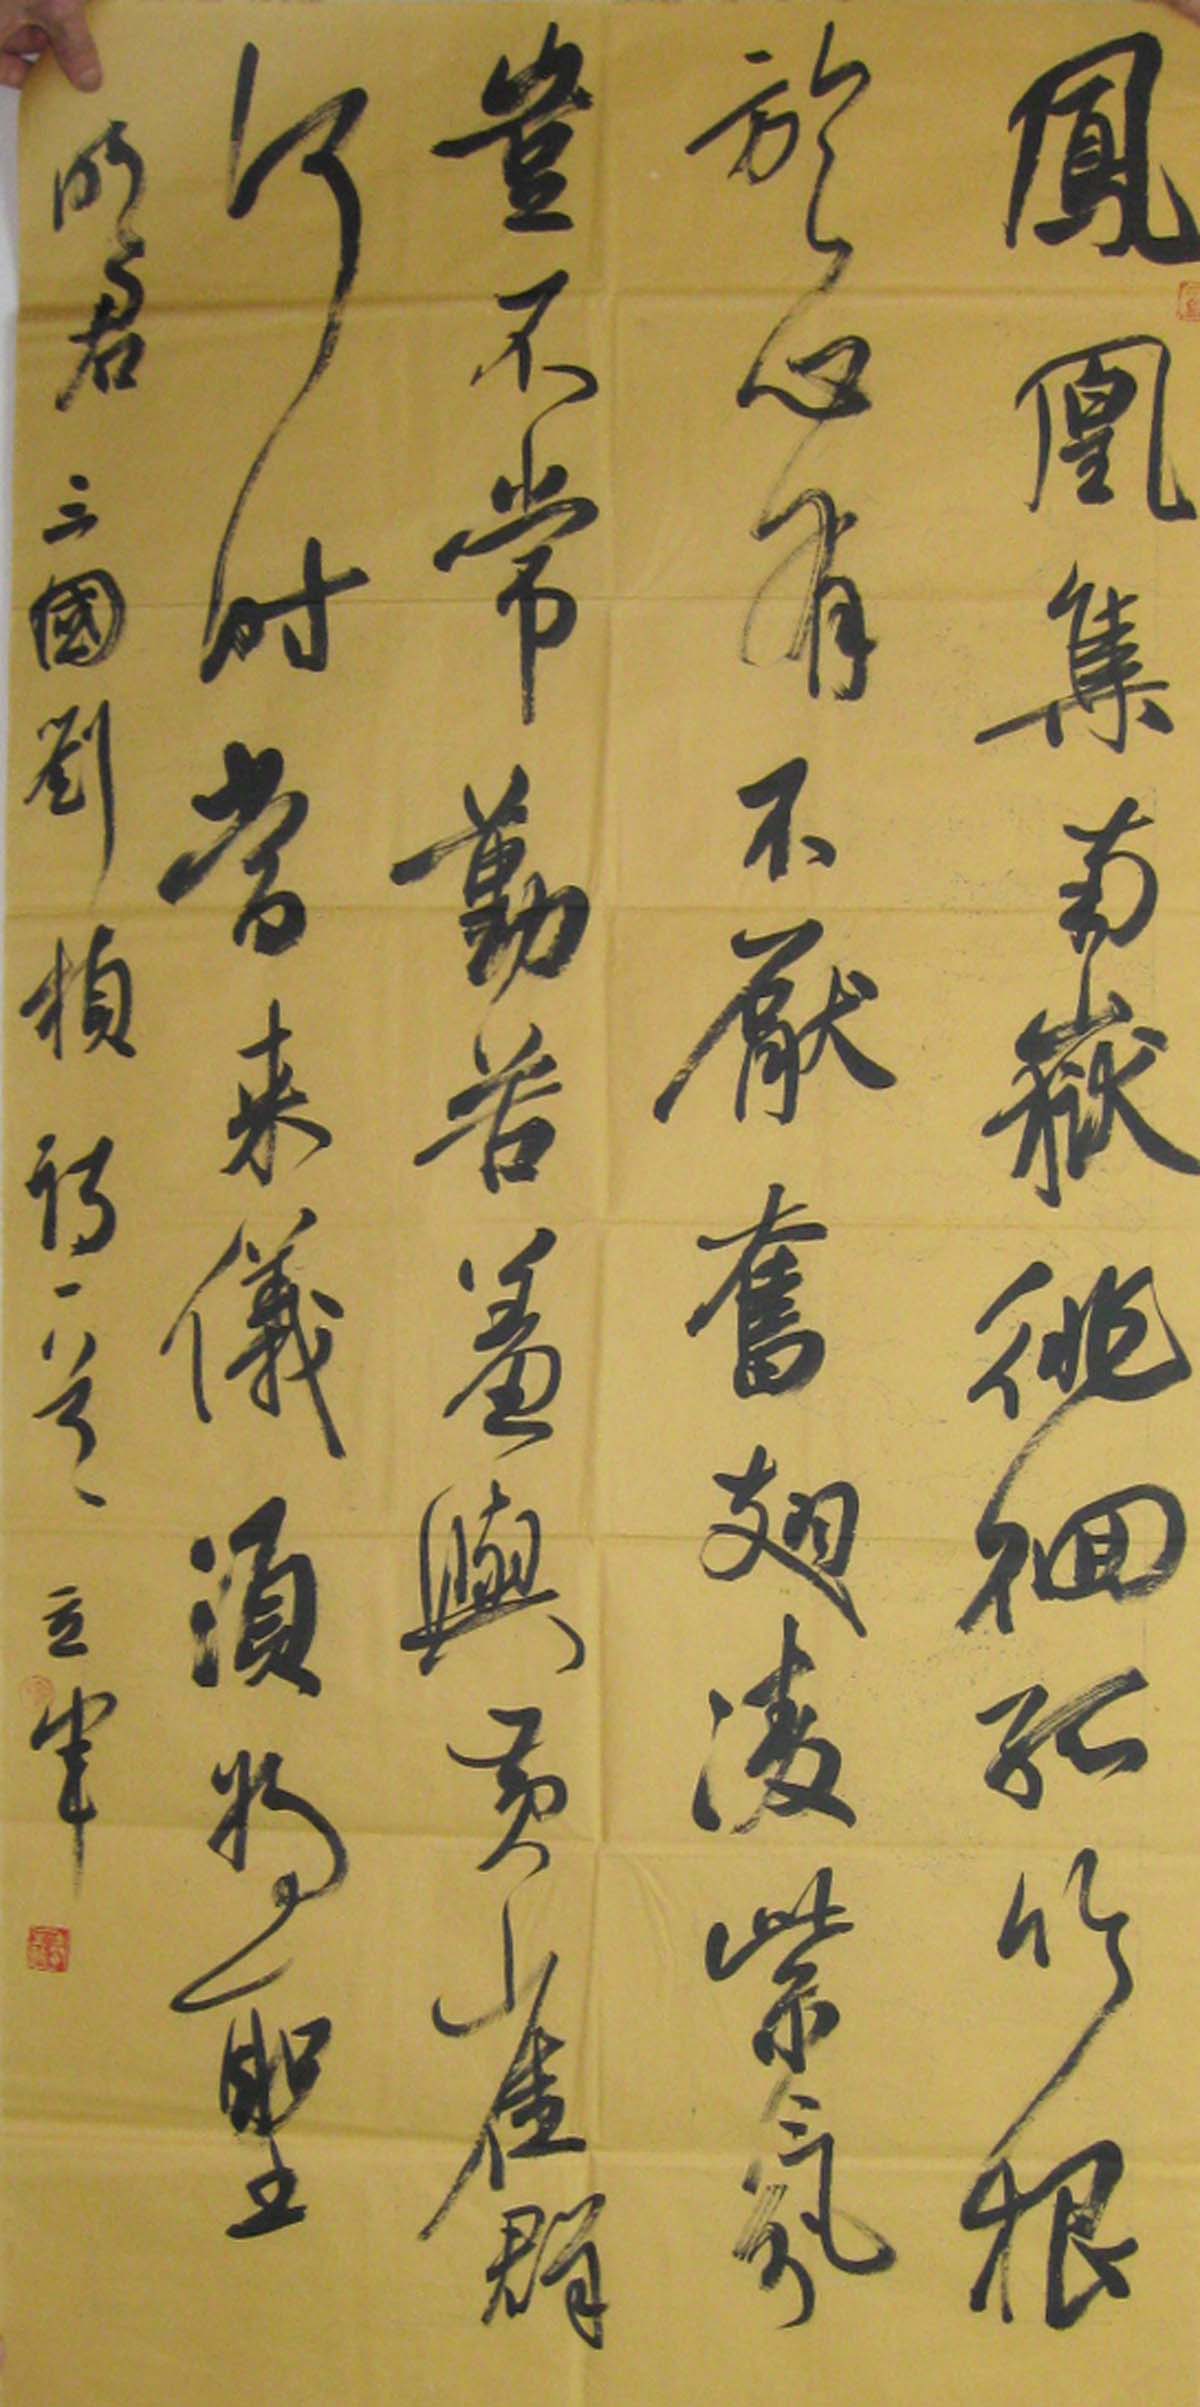 鳳凰集南嶽徘徊孤竹根
於心有不厭奮翅凌紫氛
豈不常勤苦羞與黃雀群
何時當來儀須將聖
明君 三國劉楨 詩一首 立軍